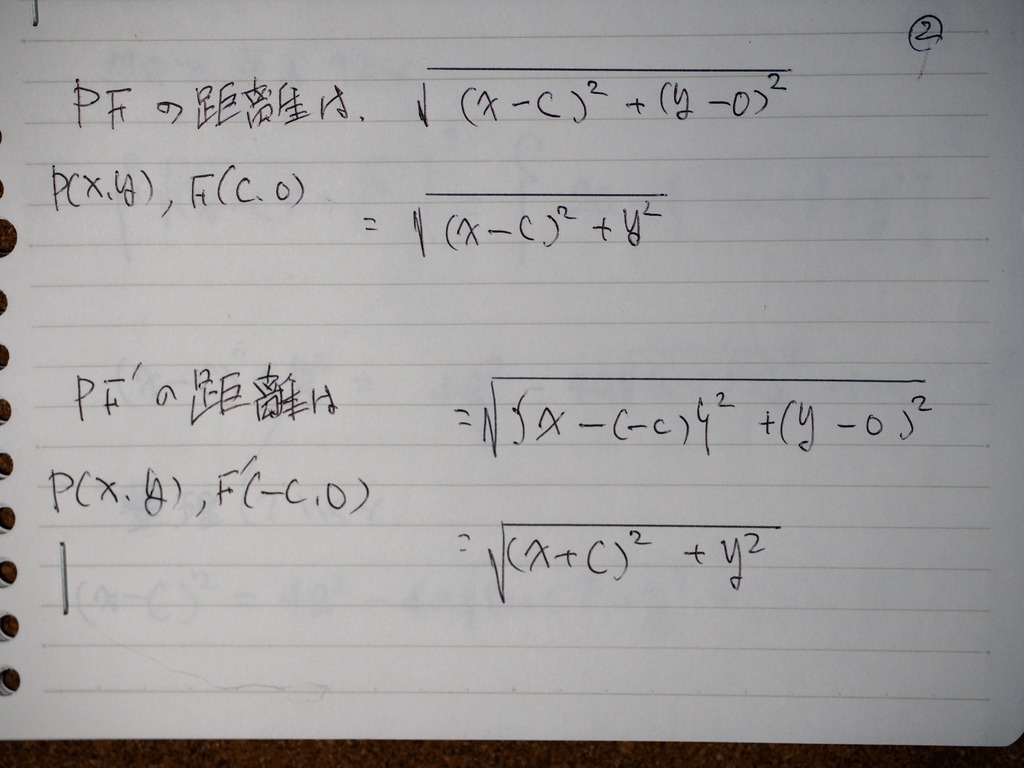 ②
PFの距離は. √(x-c)²+(y-0)²
P(x,y), F(c.0)
= √(x-c)²+y²
PF′の距離は = √{x-(-c)}²+(y-0)²
P(x.y), F′(-c.0)
= √(x+c)²+y²